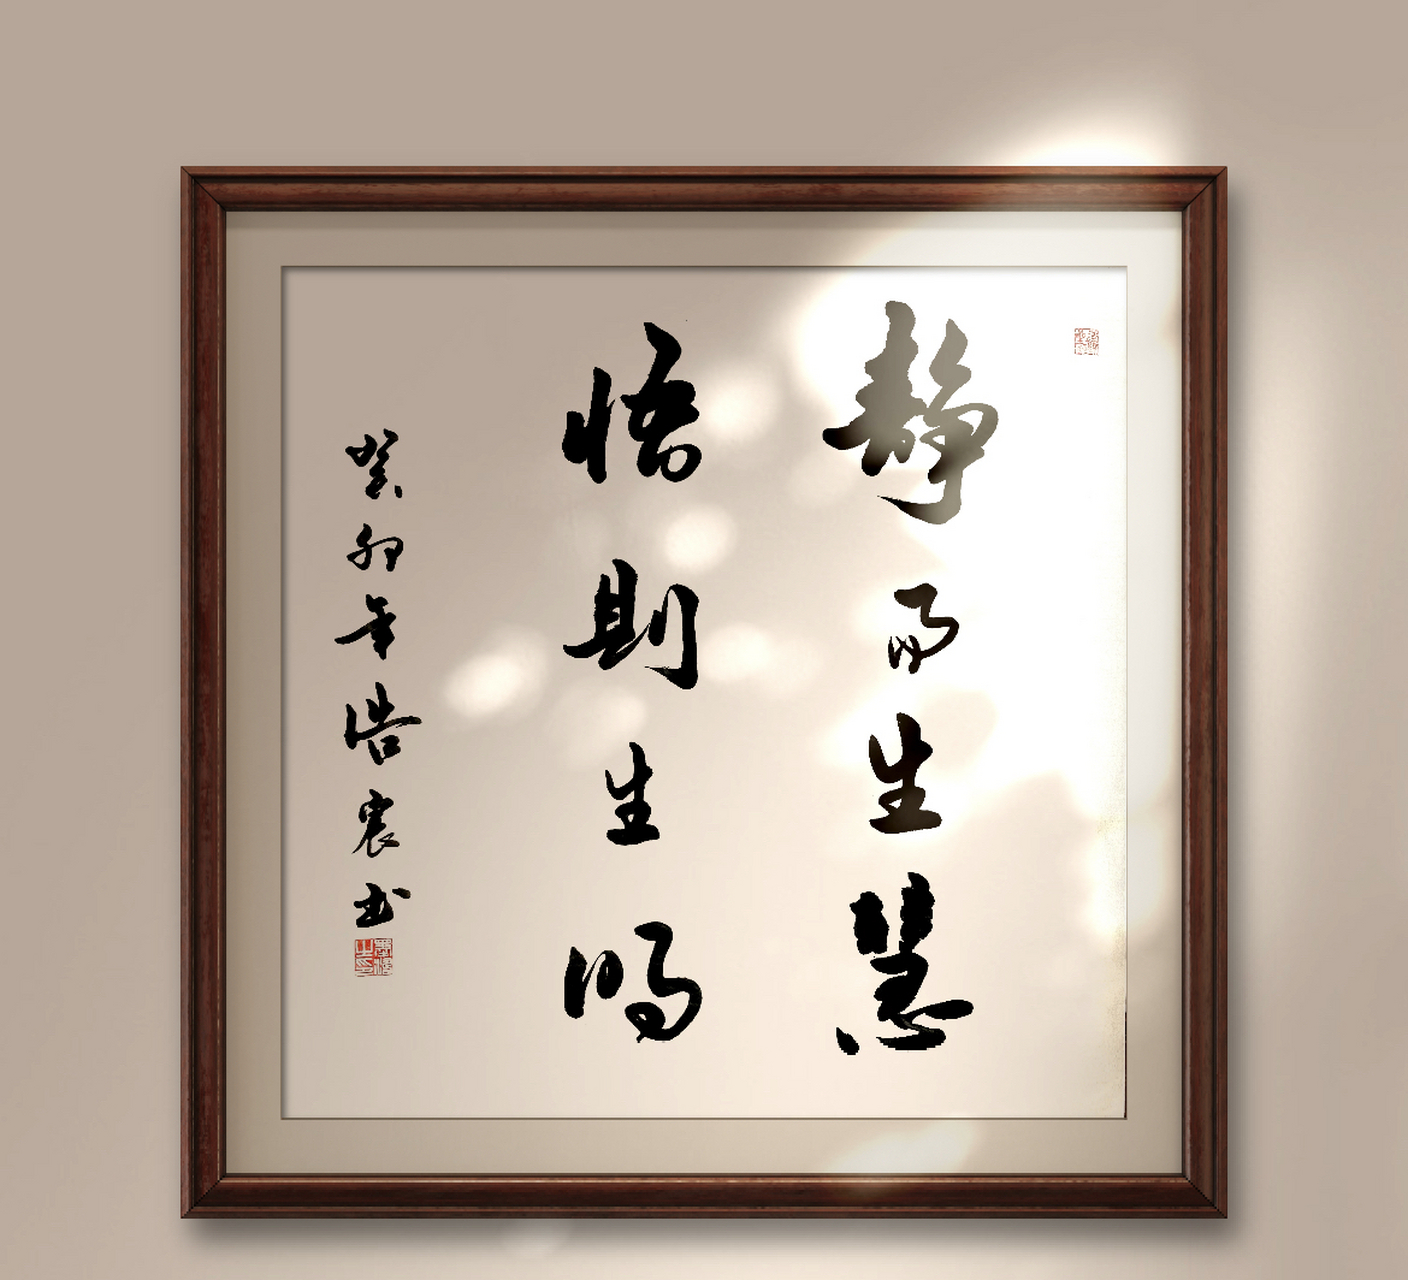 静而生慧
悟則生明
癸卯年浩宸书